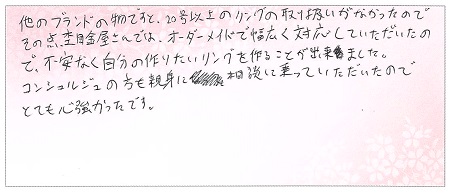 他のブランドの物ですと、20号以上のリングの取り扱いがなかったので
その点、杢目金屋さんでは、オーダーメイドで幅広く対応していただいたの
で、不安なく自分の作りたいリングを作ることが出来ました。
コンシェルジュの方も親身に相談に乗っていただいたので
とても心強かったです。